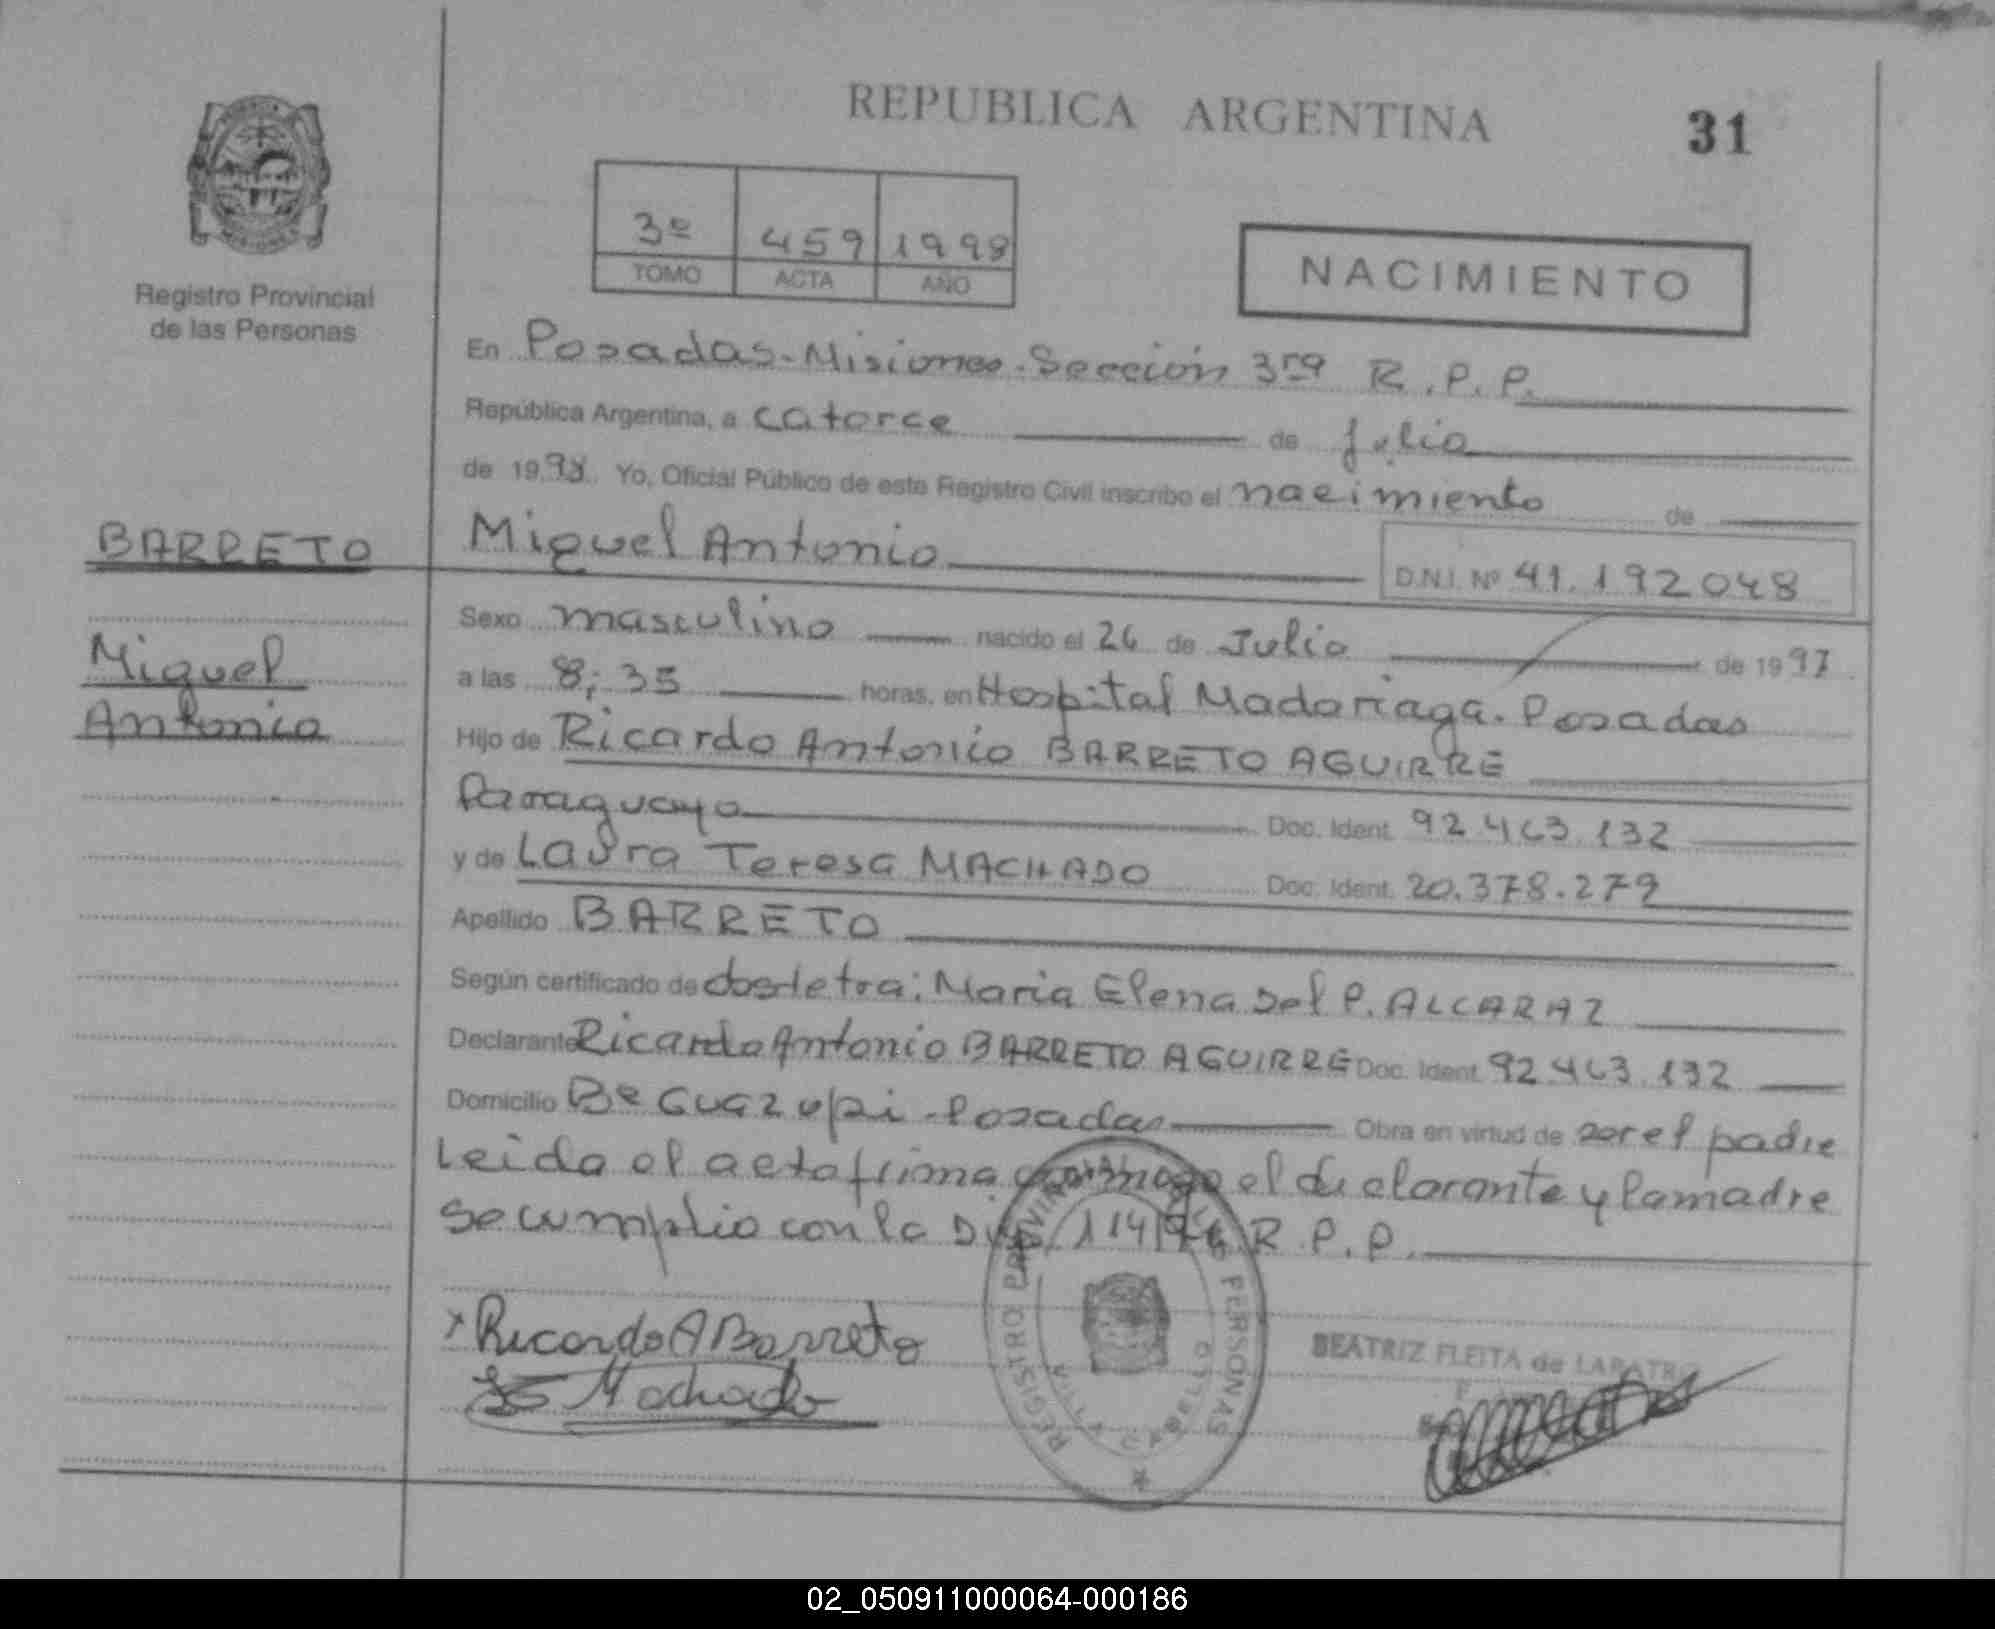 REPUBLICA ARGENTINA
31
3º 459 1998
TOMO ACTA AÑO
NACIMIENTO
Registro Provincial
de las Personas
En Posadas-Misiones-Sección 3ra R.P.P.
República Argentina, a catorce de julio
de 1998. Yo, Oficial Público de este Registro Civil inscribo el nacimiento de
BARRETO
Miguel Antonio
D.N.I. Nº 41.192048
Sexo masculino nacido el 26 de Julio de 1997
Miguel
Antonio
a las 8:35 horas, en Hospital Madariaga. Posadas
Hijo de Ricardo Antonio BARRETO AGUIRRE
Paraguayo Doc. Ident. 92.463.132
y de Laura Teresa MACHADO Doc. Ident. 20.378.279
Apellido BARRETO
Según certificado de obstetra: Maria Elena del P. ALCARAZ
Declarante Ricardo Antonio BARRETO AGUIRRE Doc. Ident. 92.463.132
Domicilio Bº Guazupi-Posadas Obra en virtud de ser el padre
Leida el acta firma conmigo el declarante y la madre
Se cumplio con la Disp. 114/96 R.P.P.
Ricardo A Barreto
Machado
REGISTRO PROVINCIAL DE LAS PERSONAS
VILLA CABELLO
BEATRIZ FLEITA de
02_050911000064-000186